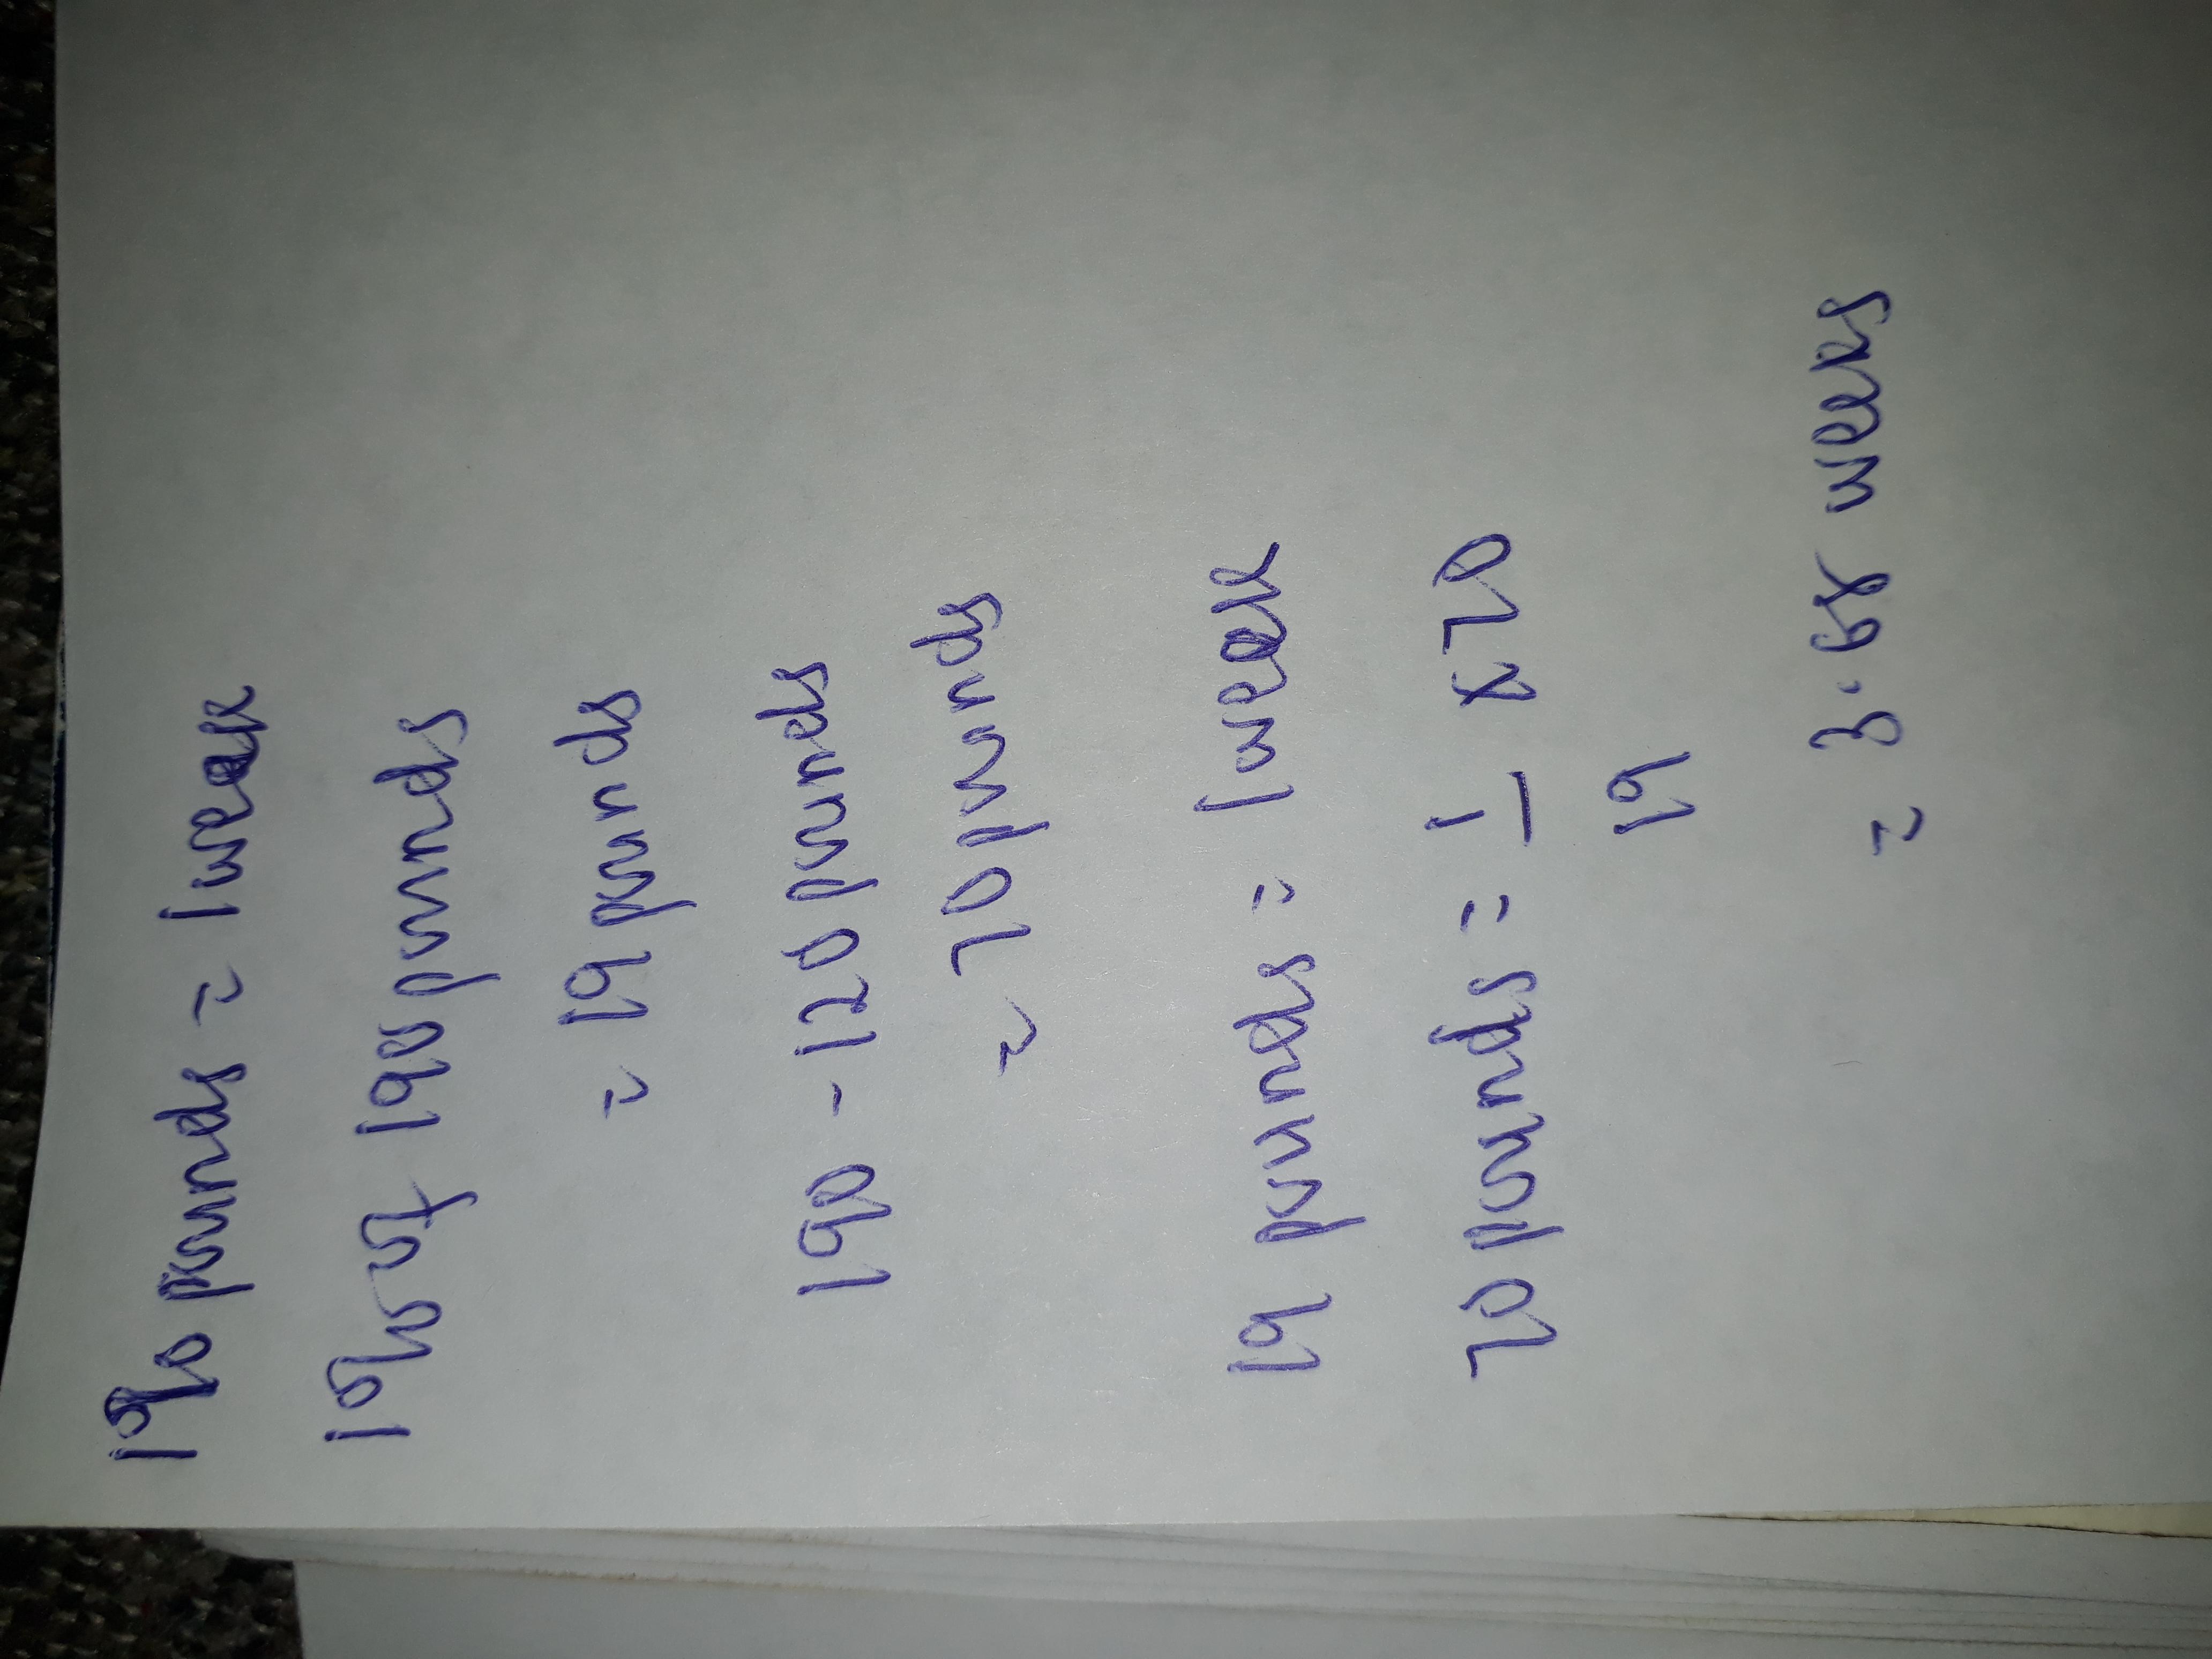 19% pounds = 1 week
10% of 190 pounds
= 19 pounds
190 - 120 pounds
= 70 pounds
19 pounds = 1 week
70 pounds = 1 x 70
19
= 3.68 weeks